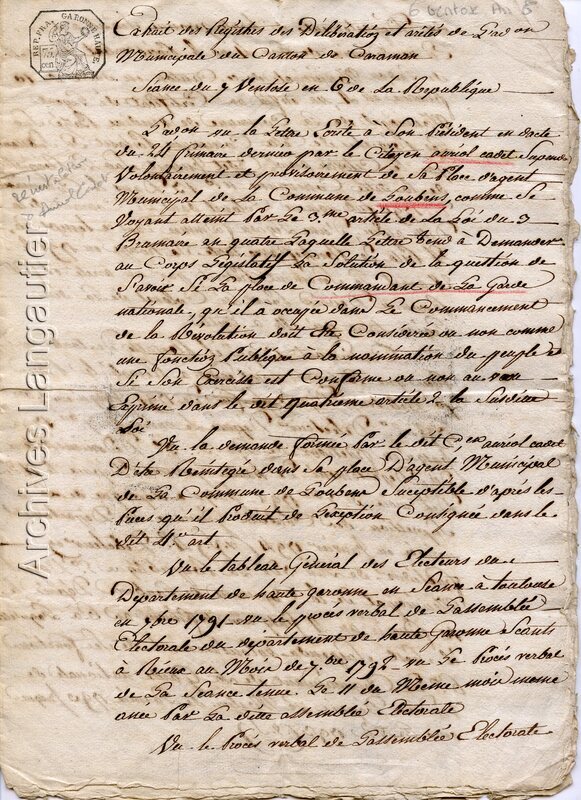 6 ventose An 6
REP. FRA. GARONNE HAUTE.
Extrait des Registres des Déliberations et aretés de L'adon
Municipale du Canton de Caraman
Seance du 7 Ventose en 6 de La Republique
L'adon vu la Lettre Ecrite à Son Président en datte
du 24 frimaire dernier par le Citoyen auriol cadet Suspendu
Volontairement et provisoirement de Sa place d'agent
Municipal de La Commune de Loubens, comme Se
Voyant atteint Par Le 3.me article de La Loi du 3
Brumaire en quatre Laquelle Lettre tend à Demander
au Corps Législatif La Solution de la question de
Savoir Si La place de Commandant de La Garde
nationale, qu'il à occupée dans Le Commancement
de la Révolution doit être Considerée ou non comme
une fonction Publique à la nomination du peuple et
Si Son Exercisse est Conforme ou non au vœu
Exprimé dans le dit quatrieme article de la Susditte
Loi
Vu la demande formée Par le dit C.en auriol cadet
D'etre Reintegré dans Sa place D'agent Municipal
de La Commune de Loubens Susceptible d'après les
Pieces qu'il Produit de L'exeption Consignée dans le
dit 4.e art
Vu le tableau Général des Electeurs du
Departement de haute garonne en Seance à toulouse
en 7bre 1791 vu le procès verbal de L'assemblée
Electorale du departement de haute Garonne Seante
à Rieux au Mois de 7.bre 1792 vu Le Procès verbal
de La Séance tenue Le 11 du Meme mois meme
année Par La ditte assemblée Electorale
Vu le Procès verbal de L'assemblée Electorale
Archives Langautier